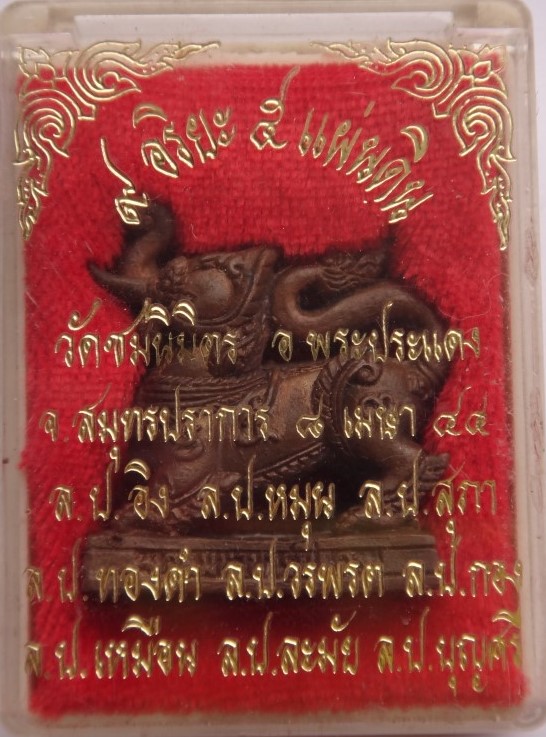 ๙ อริยะ ๕ แผ่นดิน
วัดชมนิมิตร อ พระประแดง
จ.สมุทรปราการ ๘ เมษา ๔๕
ล.ป.อิง ล.ป.หมุน ล.ป.สุภา
ล.ป.ทองดำ ล.ป.วรพรต ล.ป.กอง
ล.ป.เหมือน ล.ป.ละมัย ล.ป.บุญศรี